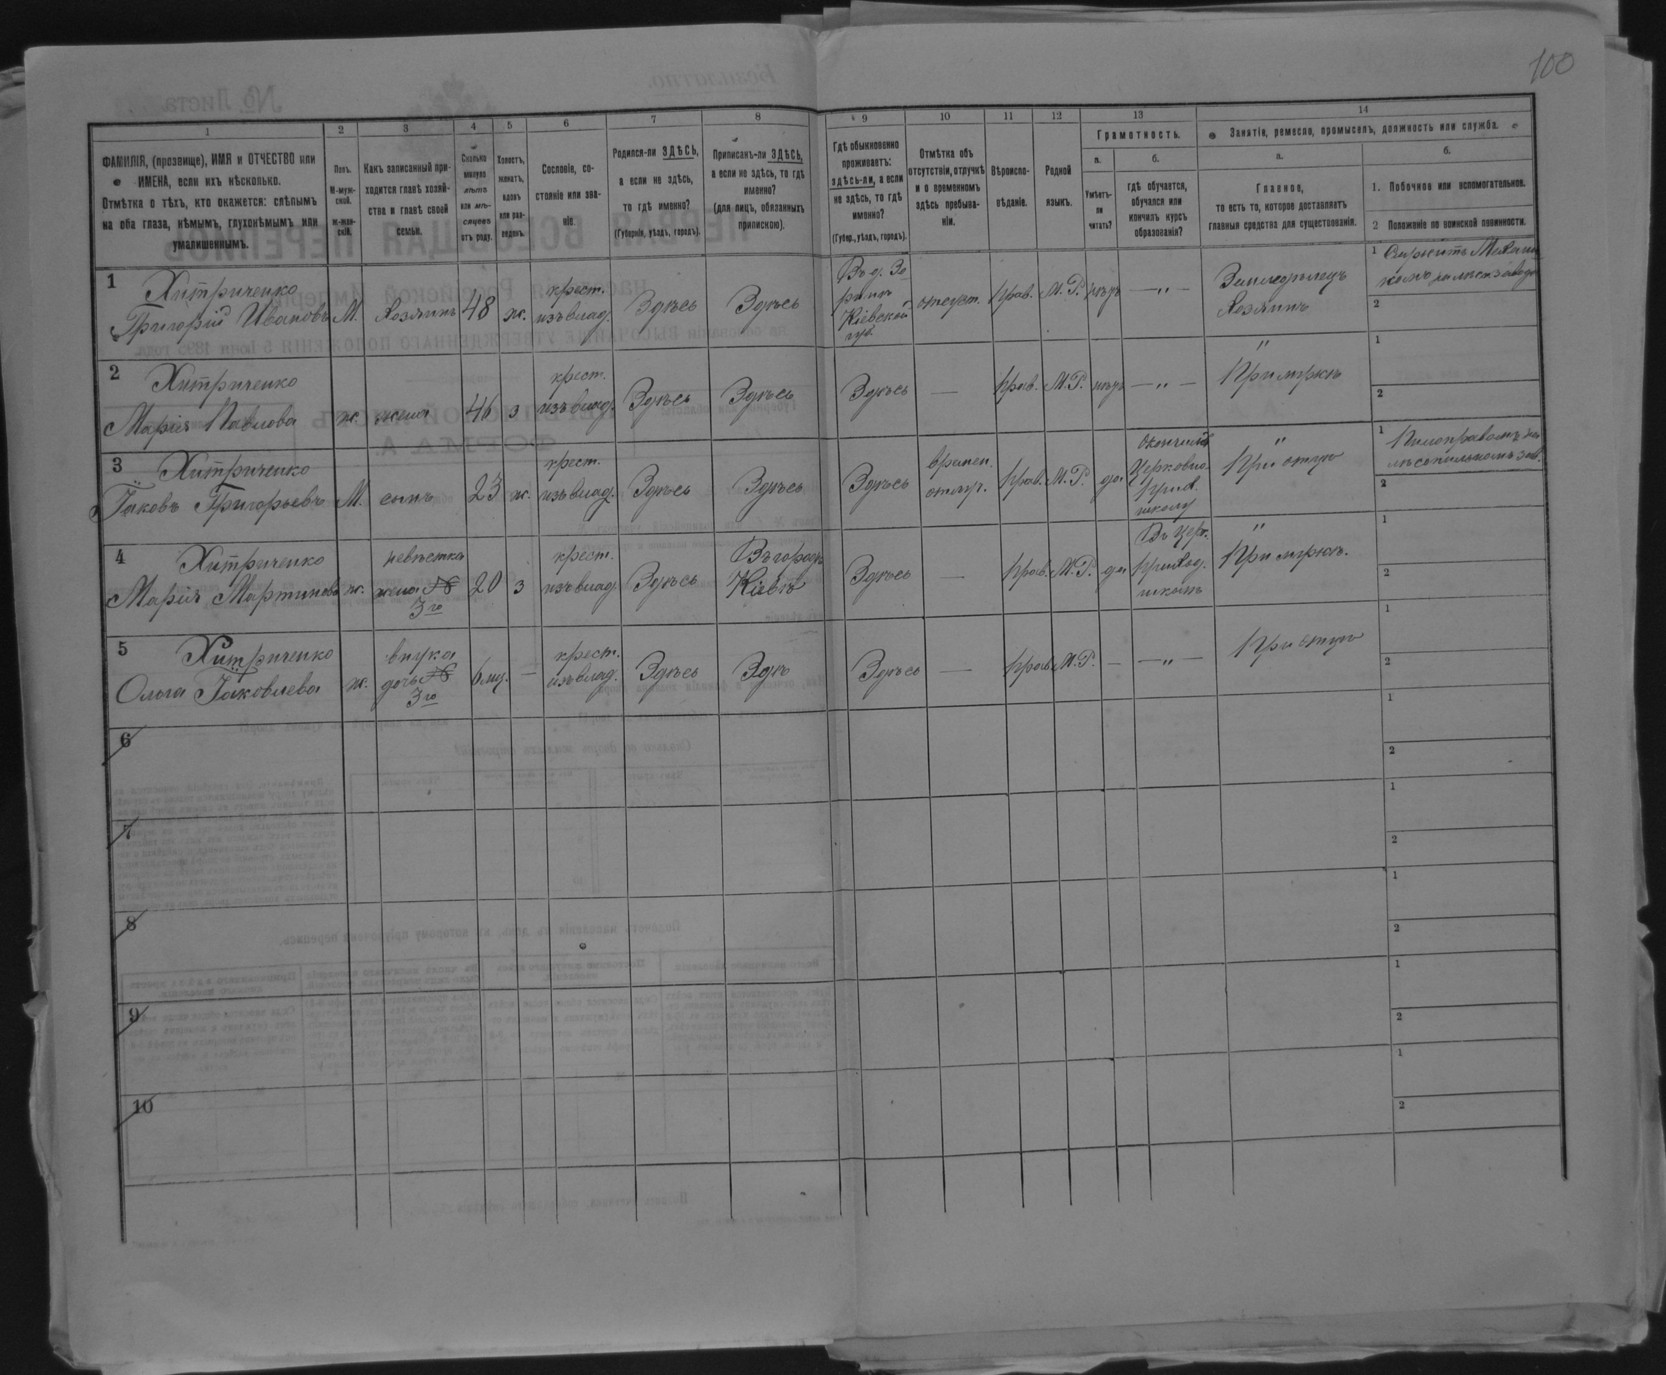 100
1 2 3 4 5 6 7 8 9 10 11 12 13 14
ФАМИЛІЯ, (прозвище), ИМЯ и ОТЧЕСТВО или
ИМЕНА, если ихъ нѣсколько.
Отмѣтка о тѣхъ, кто окажется: слѣпымъ
на оба глаза, нѣмымъ, глухонѣмымъ или
умалишеннымъ.
Полъ.
М-муж-
ской.
Ж-жен-
скій.
Какъ записанный при-
ходится главѣ хозяй-
ства и главѣ своей
семьи.
Сколько
минуло
лѣтъ
или мѣ-
сяцевъ
отъ роду.
Холостъ,
женатъ,
вдовъ
или раз-
веденъ.
Сословіе, со-
стояніе или зва-
ніе.
Родился-ли ЗДѢСЬ,
а если не здѣсь,
то гдѣ именно?
(Губернія, уѣздъ, городъ).
Приписанъ-ли ЗДѢСЬ,
а если не здѣсь, то гдѣ
именно?
(для лицъ, обязанныхъ
припискою).
Гдѣ обыкновенно
проживаетъ:
здѣсь-ли, а если
не здѣсь, то гдѣ
именно?
(Губер., уѣздъ, городъ).
Отмѣтка объ
отсутствіи, отлучкѣ
и о временномъ
здѣсь пребыва-
ніи.
Вѣроиспо-
вѣданіе.
Родной
языкъ.
Грамотность.
а.
Умѣетъ-
ли
читать?
б.
Гдѣ обучается,
обучался или
кончилъ курсъ
образованія?
Занятіе, ремесло, промыселъ, должность или служба.
а.
Главное,
то есть то, которое доставляетъ
главныя средства для существованія.
б.
1. Побочное или вспомогательное.
2 Положеніе по воинской повинности.
1 Хитриченко
Григорій Ивановъ М. Хозяинъ 48 ж. крест. изъ влад. Здѣсь Здѣсь
Кіевской губ. отсут. Прав. М.Р. нѣтъ — „ — Земледѣлецъ Хозяинъ
1
2
2 Хитриченко
Марія Павлова ж. жена 46 з крест. изъ влад. Здѣсь Здѣсь
Здѣсь — Прав. М.Р. нѣтъ — „ — „ При мужѣ
1
2
3 Хитриченко
Іаковъ Григорьевъ М. сынъ 23 ж. крест. изъ влад. Здѣсь Здѣсь
Здѣсь времен. отлуч. Прав. М.Р. да Окончилъ Церковно. приход. школу „ При отцѣ
1
2
4 Хитриченко
Марія Мартинова ж. невѣстка жена 3го 20 з крест. изъ влад. Здѣсь Въ городѣ Кіевѣ
Здѣсь — Прав. М.Р. да Въ Церк. приход. школѣ „ При мужѣ.
1
2
5 Хитриченко
Ольга Іаковлева ж. внука дочь 3го 6 мц. — крест. изъ влад. Здѣсь Здѣ
Здѣсь — Прав. М.Р. — — „ — При отцѣ
1
2
6
1
2
7
1
2
8
1
2
9
1
2
10
1
2